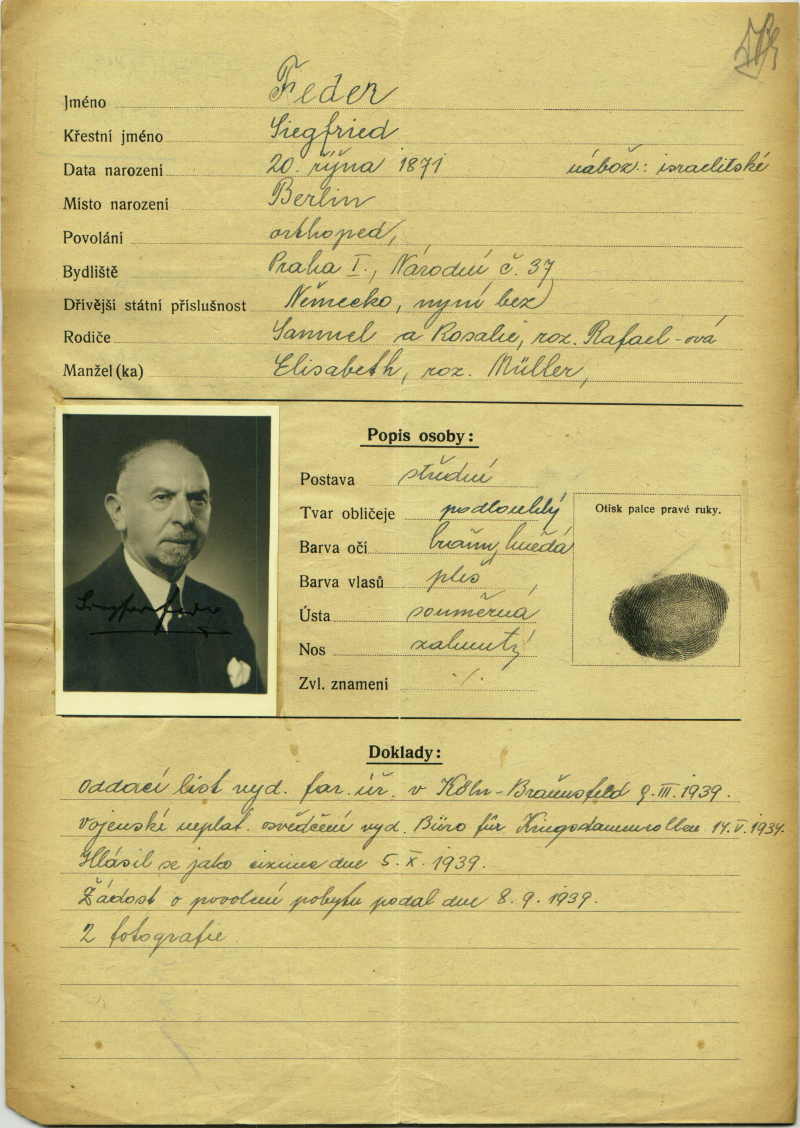 Jméno Feder
Křestní jméno Siegfried
Data narození 20. října 1871 nábož.: israelitské
Místo narození Berlin
Povolání orthoped,
Bydliště Praha I., Národní č. 37
Dřívější státní příslušnost Německo, nyní bez
Rodiče Samuel a Rosalie, roz. Rafael-ová
Manžel (ka) Elisabeth, roz. Müller,
Popis osoby:
Postava střední
Tvar obličeje podlouhlý
Barva očí hnědá
Barva vlasů pleš,
Ústa souměrná
Nos zahnutý
Zvl. znamení ./.
Otisk palce pravé ruky.
Doklady:
oddací list vyd. far. úř. v Köln-Braunsfeld 9. III. 1939.
Vojenské neplat. osvědčení vyd. Büro für 14. V. 1934.
Hlásil se jako cizinec dne 5. X. 1939.
Žádost o povolení pobytu podal dne 8. 9. 1939.
2 fotografie